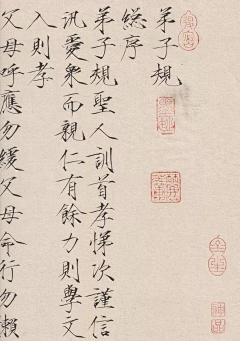 弟子規
總序
弟子規聖人訓首孝悌次謹信
汎愛衆而親仁有餘力則學文
入則孝
父母呼應勿緩父母命行勿懶